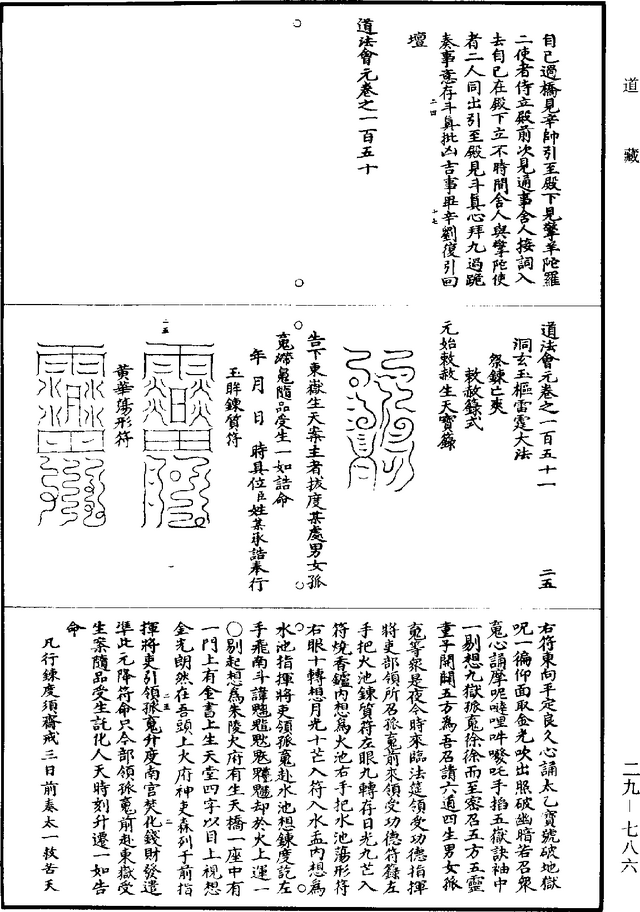 道藏
自己過橋見辛帥引至殿下見擎羊陀羅
二使者侍立殿前次見通事舍人接詞入
去自己在殿下立不時間舍人與擎陀使
者二人同出引至殿見斗真心拜九過跪
奏事意存斗真批凶吉事畢辛劉復引回
壇
道法會元卷之一百五十
道法會元卷之一百五十一 二五
洞玄玉樞雷霆大法
祭鍊亡爽
敕赦籙式
元始敕赦生天寶籙
告下東嶽生天案主者拔度某處男女孤
魂滯魄隨品受生一如誥命
年月日 時具位臣姓某承誥奉行
玉眸鍊質符
黃華蕩形符
右符東向平定良久心誦太乙寶號破地獄
呪一徧仰面取金光吹出照破幽暗若召衆
手掐五嶽訣袖中
一剔想九獄孤魂徐徐而至密召五方五靈
童子開闢五方為吾召請六道四生男女孤
魂等衆是夜今時來臨法筵領受功德指揮
將吏部領所召孤魂前來領受功德符籙左
手把火池鍊質符左眼九轉存日光九芒入
符燒香鑪內想為火池右手把水池蕩形符
右眼十轉想月光十芒入符入水盂內想為
水池指揮將吏領孤魂赴水池想鍊度訖左
手飛南斗諱
却於火上運一
剔起想為朱陵火府有生天橋一座中有
一門上有金書上生天堂四字以目上視想
金光朗然在吾頭上火府神吏森列于前指
揮將吏引領孤魂升度南宮焚化錢財發遣
準此元降符命只今部領孤魂前赴東嶽受
生案隨品受生託化人天時刻升遷一如告
命
凡行鍊度須齋戒三日前奏太一救苦天
二九—七八六